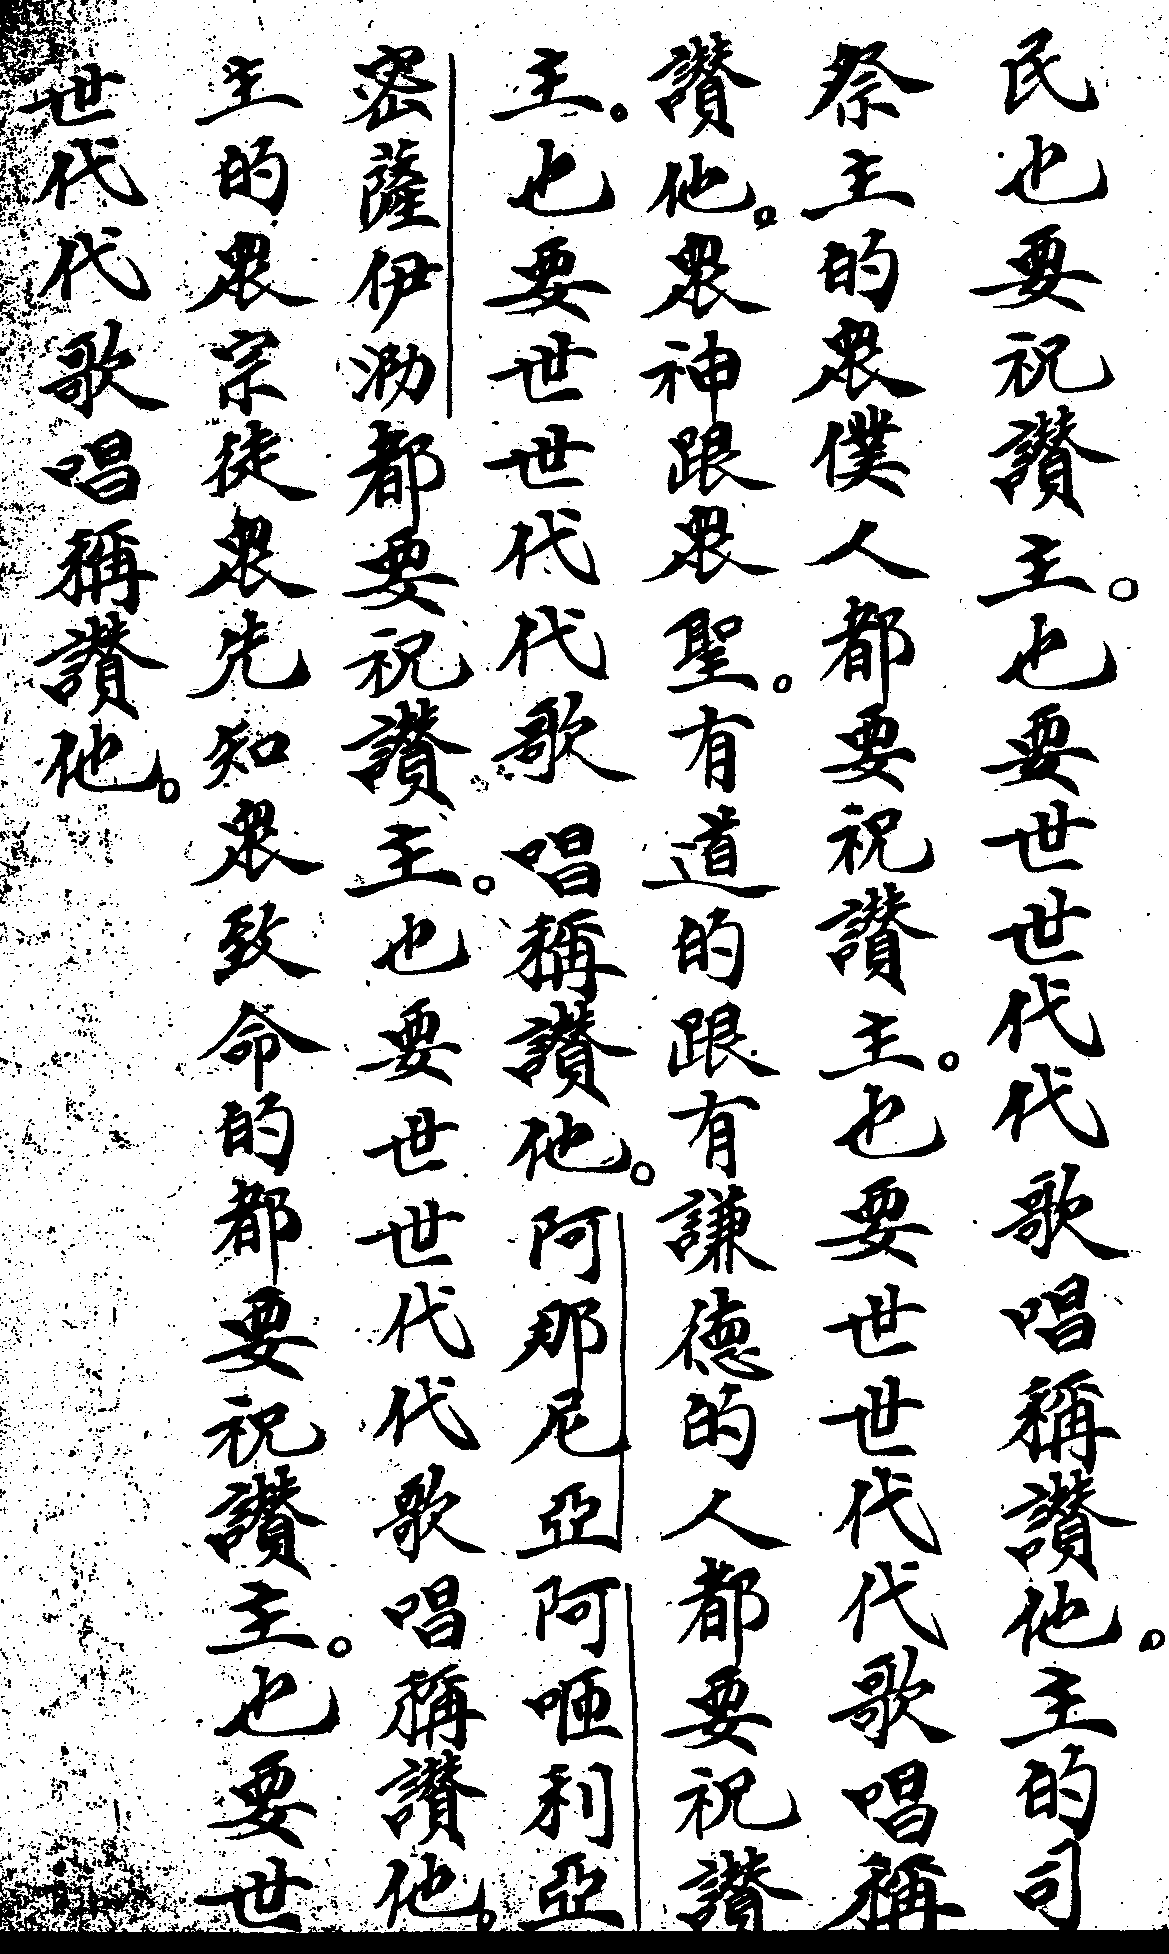 民也要祝讚主。也要世世代代歌唱稱讚他。主的司
祭主的衆僕人都要祝讚主。也要世世代代歌唱稱
讚他。衆神跟衆聖。有道的跟有謙德的人都要祝讚
主。也要世世代代歌唱稱讚他。阿那尼亞阿咂利亞
密薩伊泐都要祝讚主。也要世世代代歌唱稱讚他。
主的衆宗徒衆先知衆致命的都要祝讚主。也要世
世代代歌唱稱讚他。